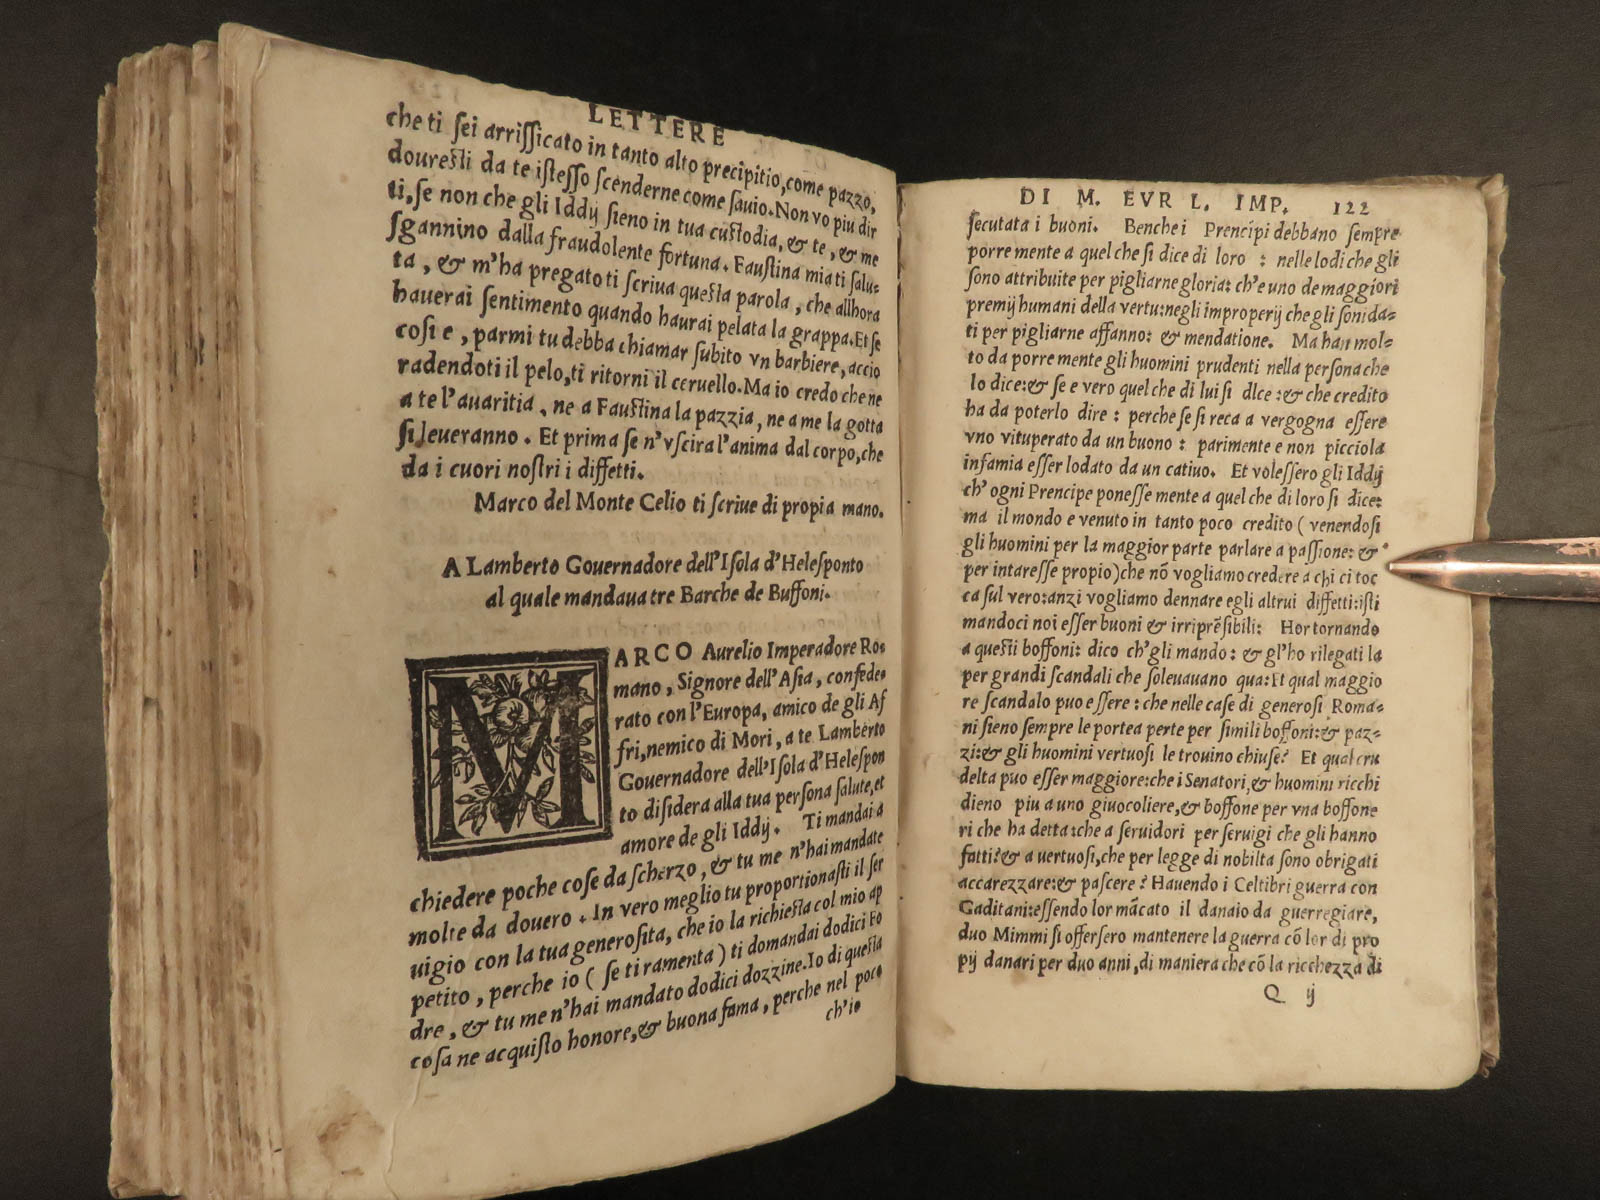 LETTERE
che ti ſei arriſſicato in tanto alto precipitio, come pazzo,
doureſti da te iſteſſo ſcenderne come ſauio. Non vo piu dir
ti, ſe non che gli Iddij ſieno in tua cuſtodia, & te, & me
ſgannino dalla fraudolente fortuna. Fauſtina mia ti ſalu-
ta, & m'ha pregato ti ſcriua queſta parola, che allhora
hauerai ſentimento quando haurai pelata la grappa. Et ſe
coſi e, parmi tu debba chiamar ſubito vn barbiere, accio
radendoti il pelo, ti ritorni il ceruello. Ma io credo che ne
a te l'auaritia, ne a Fauſtina la pazzia, ne a me la gotta
ſi leueranno. Et prima ſe n'vſcira l'anima dal corpo, che
da i cuori noſtri i diffetti.
Marco del Monte Celio ti ſcriue di propia mano.
A Lamberto Gouernadore dell'Iſola d'Heleſponto
al quale mandaua tre Barche de Buffoni.
MARCO Aurelio Imperadore Ro-
mano, Signore dell'Aſia, confede-
rato con l'Europa, amico de gli Af
fri, nemico di Mori, a te Lamberto
Gouernadore dell'Iſola d'Heleſpon
to diſidera alla tua perſona ſalute, et
amore de gli Iddij. Ti mandai a
chiedere poche coſe da ſcherzo, & tu me n'hai mandate
molte da douero. In vero meglio tu proportionaſti il ſer
uigio con la tua generoſita, che io la richieſta col mio ap
petito, perche io ( ſe ti ramenta ) ti domandai dodici Fo
dre, & tu me n'hai mandato dodici dozzine. Io di queſta
coſa ne acquiſto honore, & buona fama, perche nel poco
ch'io
DI M. EVR L. IMP. 122
ſecutata i buoni. Benche i Prencipi debbano ſempre
porre mente a quel che ſi dice di loro : nelle lodi che gli
ſono attribuite per pigliarne gloria: ch'e uno de maggiori
premij humani della vertu: negli improperij che gli ſoni da-
ti per pigliarne affanno: & mendatione. Ma han mol-
to da porre mente gli huomini prudenti nella perſona che
lo dice: & ſe e vero quel che di lui ſi dIce : & che credito
ha da poterlo dire : perche ſe ſi reca a vergogna eſſere
vno vituperato da un buono : parimente e non picciola
infamia eſſer lodato da un catiuo. Et voleſſero gli Iddij
ch'ogni Prencipe poneſſe mente a quel che di loro ſi dice:
ma il mondo e venuto in tanto poco credito ( venendoſi
gli huomini per la maggior parte parlare a paſſione: &
per intareſſe propio) che nõ vogliamo credere a chi ci toc
ca ſul vero: anzi vogliamo dennare egli altrui diffetti: iſti
mandoci noi eſſer buoni & irripreſ̃ibili: Hor tornando
a queſti boffoni: dico ch'gli mando: & gl'ho rilegati la
per grandi ſcandali che ſoleuauano qua: Et qual maggio
re ſcandalo puo eſſere : che nelle caſe di generoſi Roma-
ni ſieno ſempre le porte a perte per ſimili boffoni: & paz-
zi: & gli huomini vertuoſi le trouino chiuſe? Et qual cru
delta puo eſſer maggiore: che i Senatori, & huomini ricchi
dieno piu a uno giuocoliere, & boffone per vna boffone
ri che ha detta: che a ſeruidori per ſeruigi che gli hanno
fatti? & a vertuoſi, che per legge di nobilta ſono obrigati
accarezzare: & paſcere ? Hauendo i Celtibri guerra con
Gaditani: eſſendo lor mãcato il danaio da guerregiare,
duo Mimmi ſi offerſero mantenere la guerra cõ lor di pro
pij danari per duo anni, di maniera che cõ la ricchezza di
Q ij